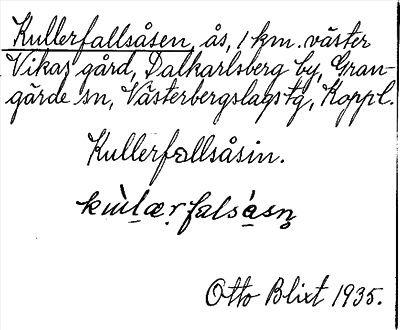 Kullerfallsåsen, ås, 1 km. väster
Vikas gård, Dalkarlsberg by, Gran-
gärde sn, Västerbergslags tg, Koppl.
Kullerfallsåsin.
Otto Blixt 1935.